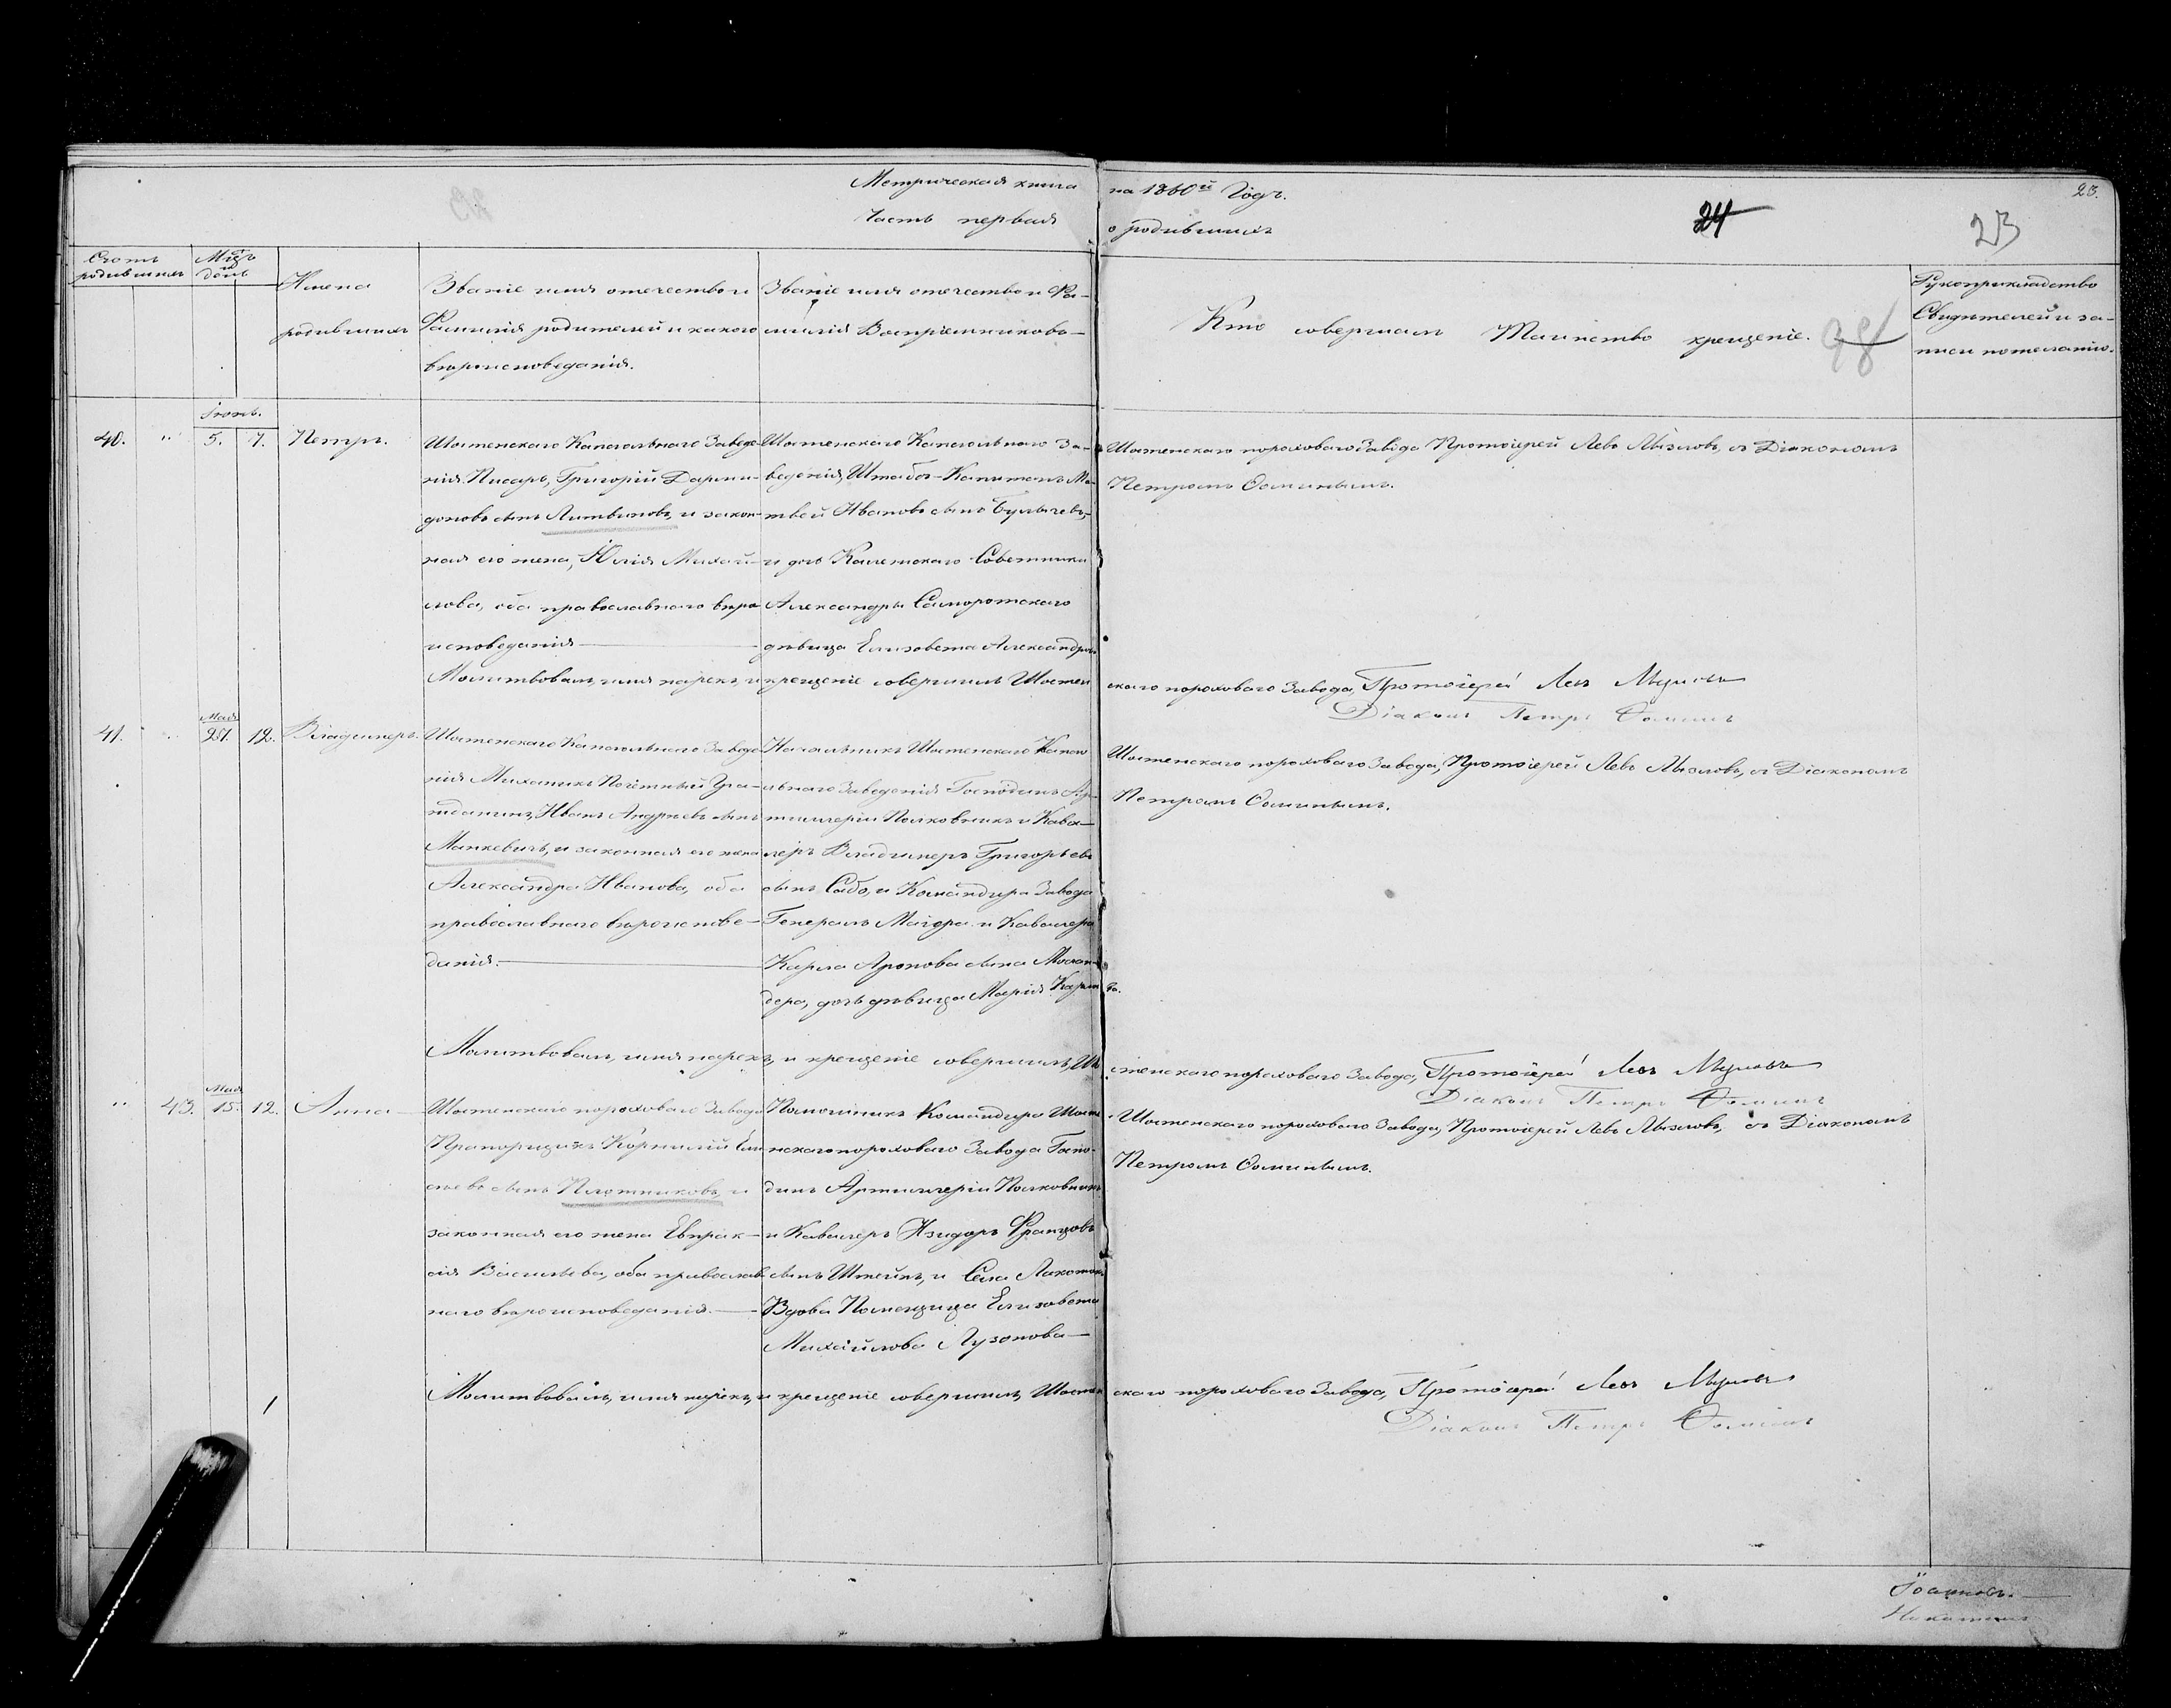 Метрическая книга на 1860й Годъ. 23.
Часть первая о родившихся 24 23
Счотъ родившихся
Мцъ и день
Имена родившихъ
Званіе имя отечество и
Фамилія родителей и какого
вѣроисповеданія.
Званіе имя отечество и Фа-
милія Воспріемниковъ
Кто совершалъ Таинство крещеніе. 98
Рукоприкладство
Свидѣтелей и за-
писи по желанію.
Іюнь.
40. " 5. 7. Петръ.
Шостенскаго Капсюльнаго Заведе-
нія Писарь, Григорій
сынъ Литвиновъ, и закон-
ная его жена, Юлія Михай-
лова, оба православнаго вѣро
исповеданія
Шостенскаго Капсюльнаго За-
веденія, Штабсъ-Капитанъ Ма-
твей Ивановъ сынъ Булычевъ,
и дочь Колежскаго Советника
Александра
дѣвица Елизовета Александрова
Шостенскаго пороховаго Завода Протоіерей Левъ Мызловъ, съ Діакономъ
Петромъ Ѳоминымъ.
Молитвовалъ, имя нарекъ, и крещеніе совершилъ Шостенскаго пороховаго Завода, Протоіерей Левъ Мызловъ
Діаконъ Петръ Ѳоминъ
Мая
41. " 27. 12. Владимеръ.
Шостенскаго Капсюльнаго Заведе
нія Миханикъ Почетный Гра-
жданинъ, Иванъ Андреевъ сынъ
Манкевичъ, и законная его жена
Александра Иванова, оба
православнаго вѣроиспове-
данія.
Начальникъ Шостенскаго Капсю
льнаго Заведенія Господинъ Ар-
тиллеріи Полковникъ и Кава-
леръ Владимеръ Григорьевъ
сынъ Сабо, и Командира Завода
Генералъ Маіора и Кавалера
Карла Аронова сына Молан-
дера, дочь дѣвица Марія Карлова.
Шостенскаго пороховаго Завода, Протоіерей Левъ Мызловъ, съ Діакономъ
Петромъ Ѳоминымъ.
Молитвовалъ, имя нарекъ, и крещеніе совершилъ, Шостенскаго пороховаго Завода, Протоіерей Левъ Мызловъ
Діаконъ Петръ Ѳоминъ
Мая
" 43. 15. 12. Анна
Шостенскаго пороховаго Завода
Прапорщикъ Корнилій Ели
сѣевъ сынъ Плотниковъ, и
законная его жена Евпрак-
сія Васильева, оба православ
наго вѣроисповеданія.
Помощникъ Командира Шосте
нскаго пороховаго Завода Госпо-
динъ Артиллеріи Полковникъ
и Кавалеръ Изидоръ Францовъ
сынъ Штейнъ, и Села
Вдова Помещица Елизовета
Михайлова Лузанова
Шостенскаго пороховаго Завода, Протоіерей Левъ Мызловъ, съ Діакономъ
Петромъ Ѳоминымъ.
Молитвовалъ, имя нарекъ, и крещеніе совершилъ, Шостенскаго пороховаго Завода, Протоіерей Левъ Мызловъ
Діаконъ Петръ Ѳоминъ